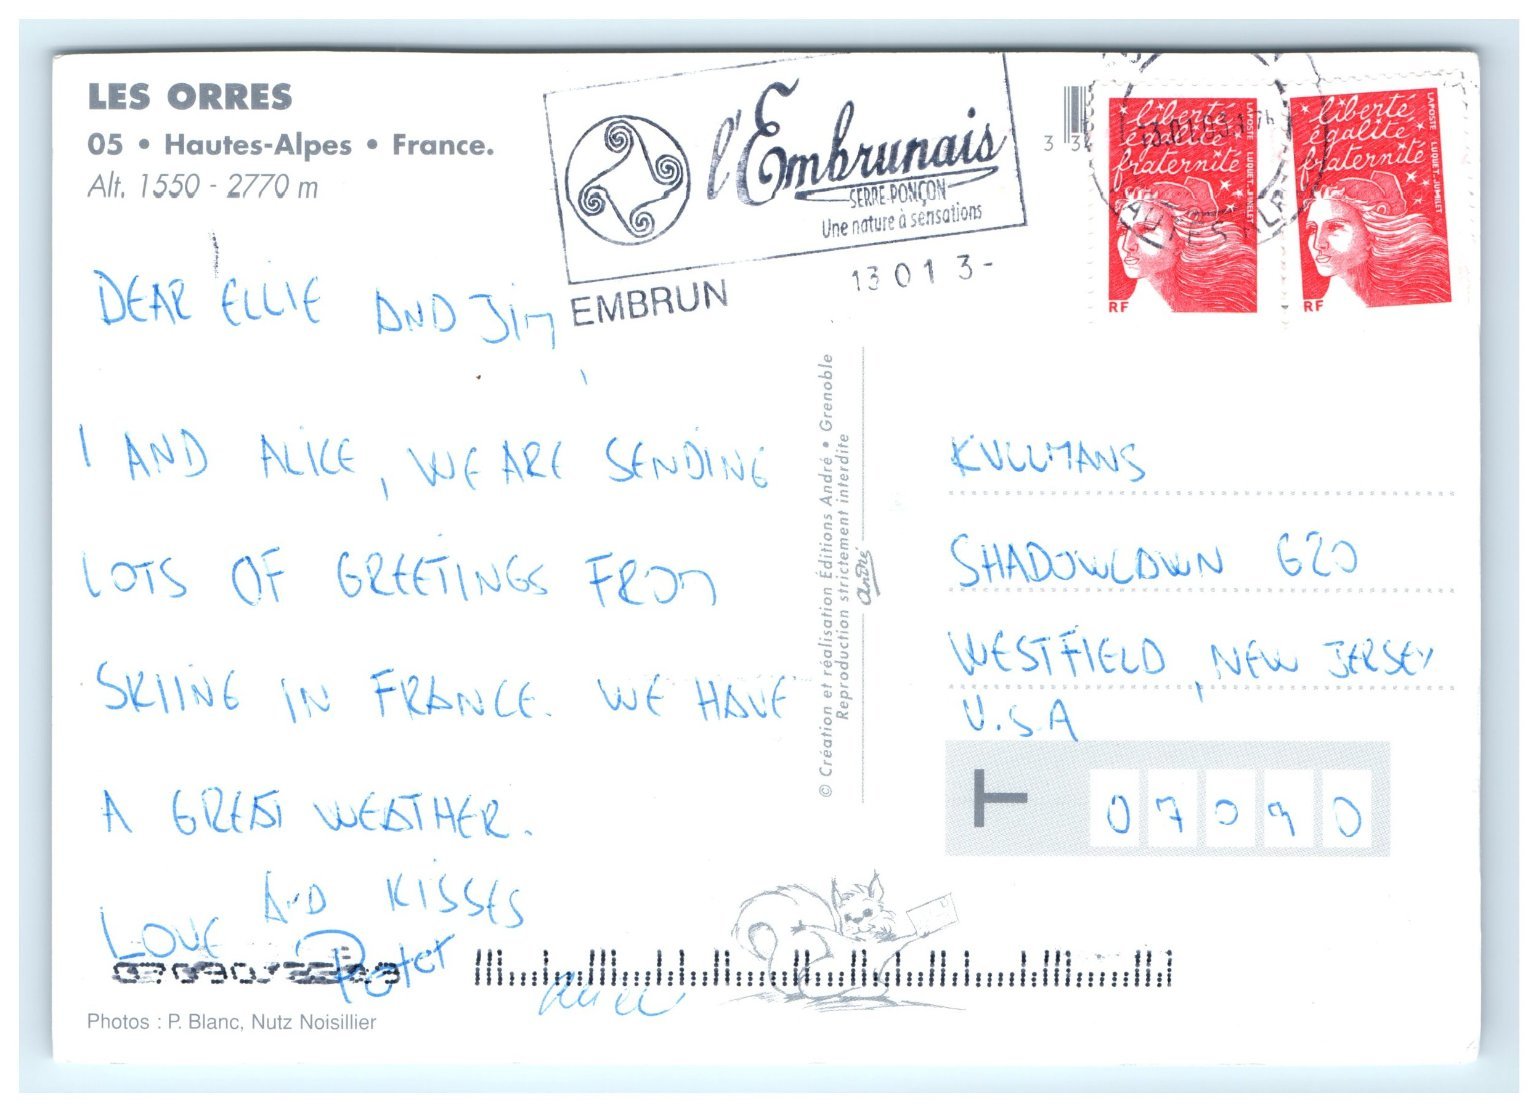 LES ORRES
05 • Hautes-Alpes • France.
Alt. 1550 - 2770 m
l'Embrunais
SERRE-PONÇON
Une nature à sensations
EMBRUN
13 01 3-
3 3
liberté
égalité
fraternité
LAPOSTE LUQUET-JUMELET
RF
liberté
égalité
fraternité
LAPOSTE LUQUET-JUMELET
RF
HAUTES ALPES
DEAR ELLIE AND JIM
I AND ALICE, WE ARE SENDING
LOTS OF GREETINGS FROM
SKIING IN FRANCE. WE HAVE
A GREAT WEATHER.
LOVE AND KISSES
Peter
Alice
© Création et réalisation Éditions André • Grenoble
Reproduction strictement interdite
André
KULLMANS
SHADOWLAWN 620
WESTFIELD, NEW JERSEY
U.S.A
T
07090
Photos : P. Blanc, Nutz Noisillier